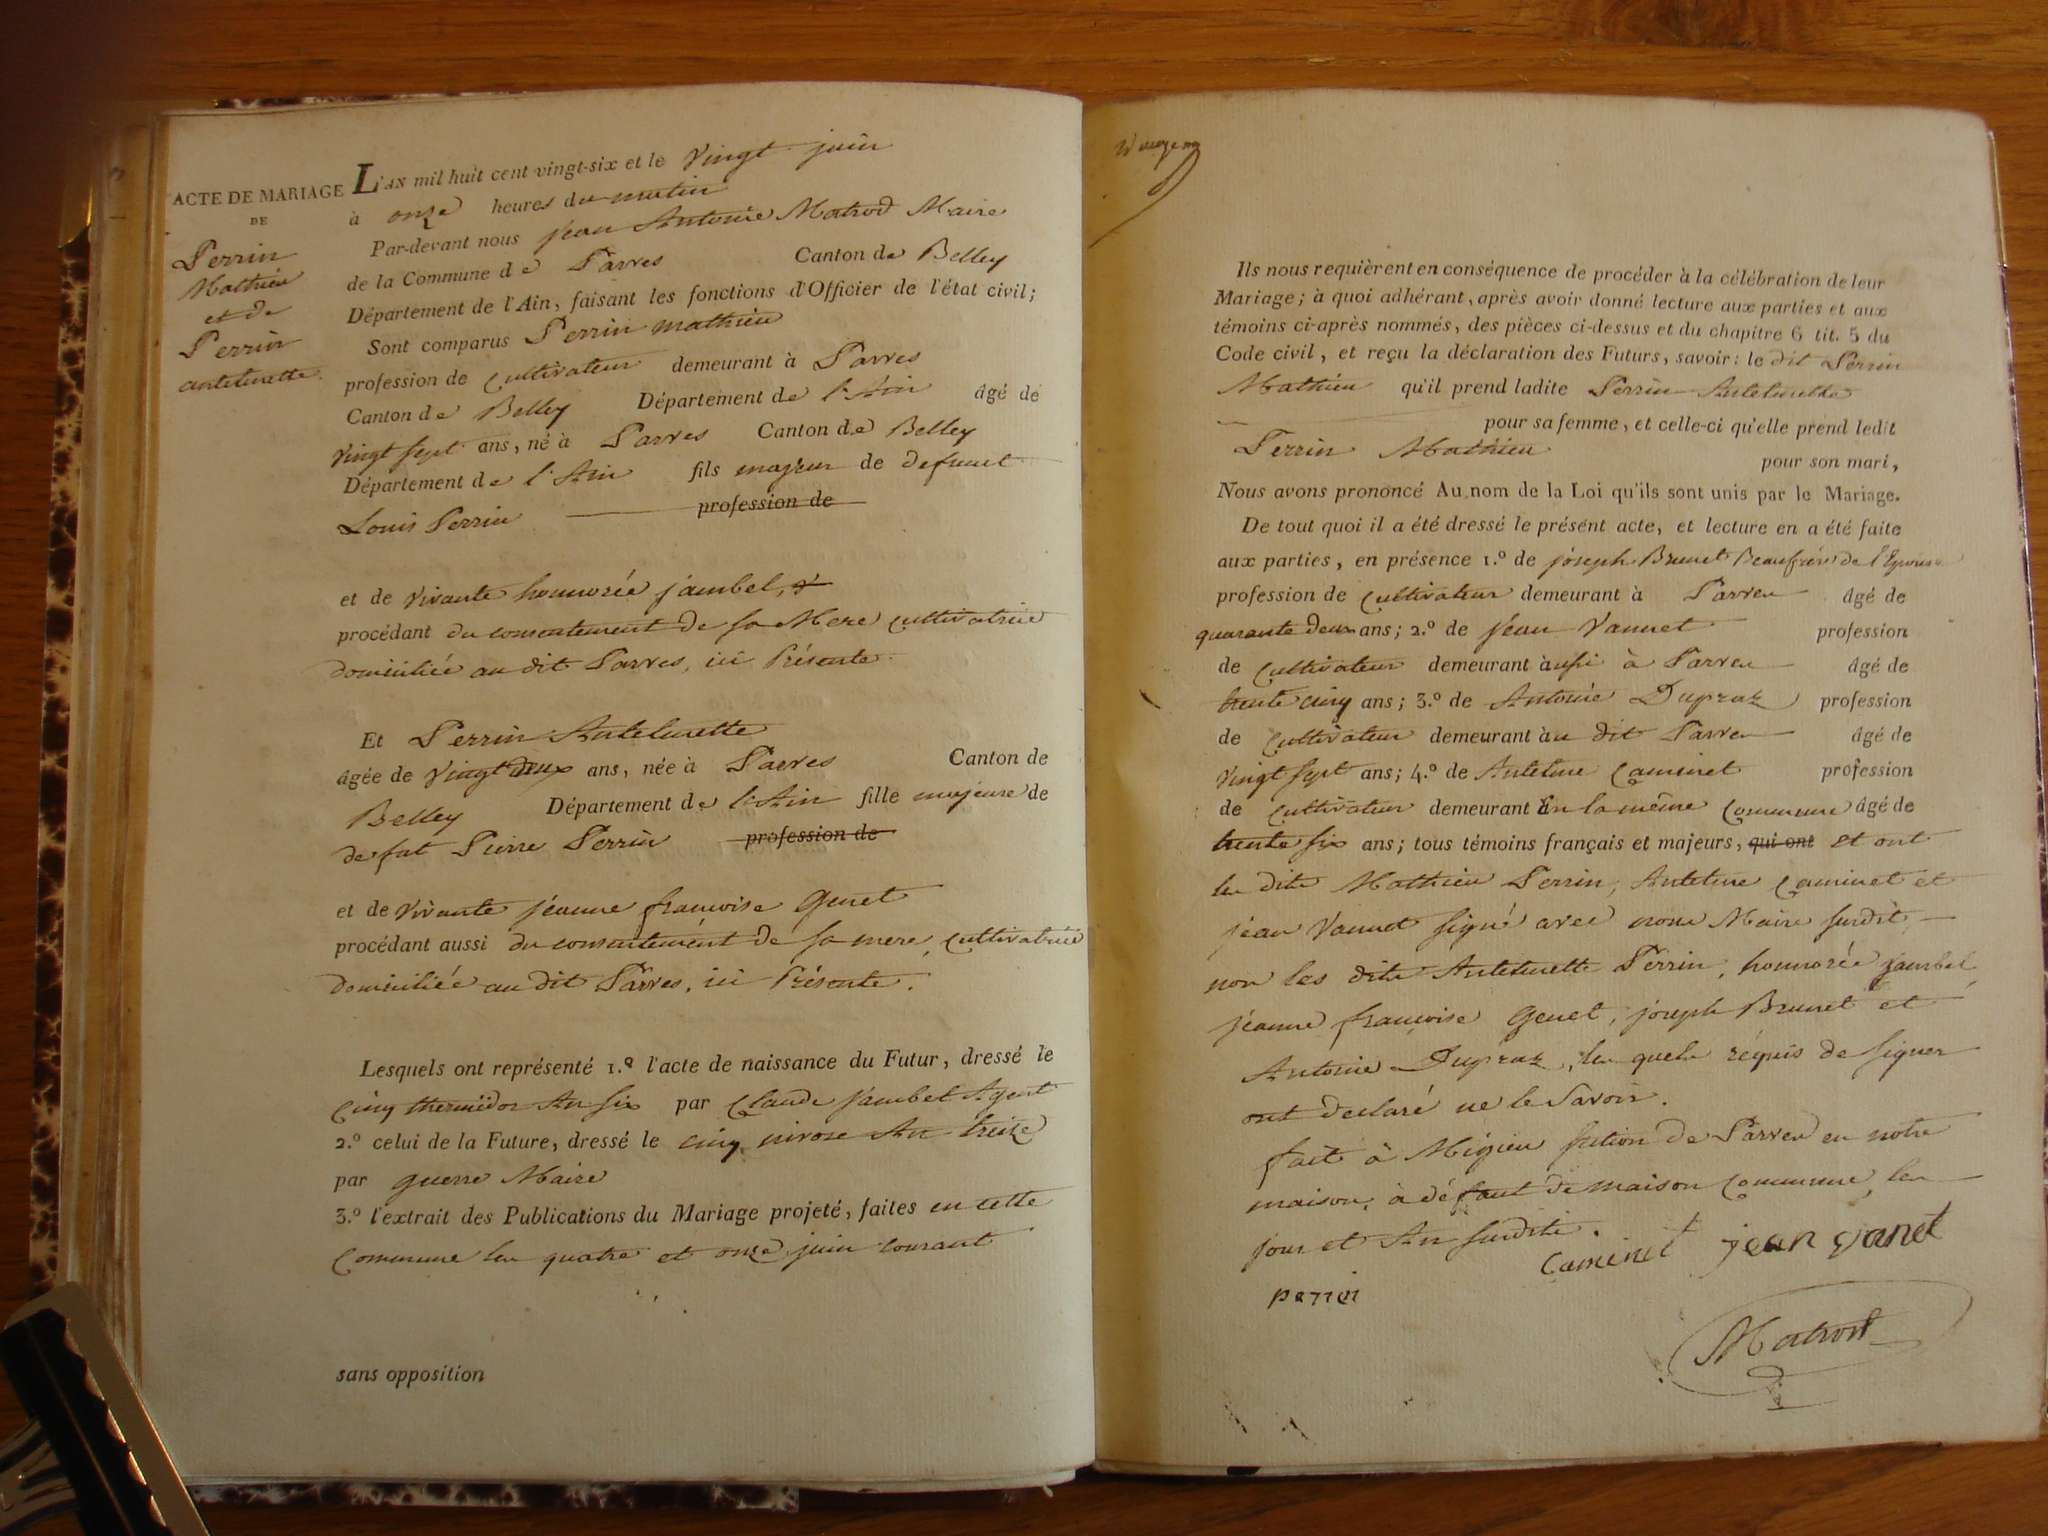 ACTE DE MARIAGE
DE
Perrin
Mathieu
et de
Perrin
antelmette.
L'AN mil huit cent vingt-six et le vingt juin
à onze heures du matin
Par-devant nous jean Antoine Matrod Maire
de la Commune de Parves Canton de Belley
Département de l'Ain, faisant les fonctions d'Officier de l'état civil;
Sont comparus Perrin mathieu
profession de cultivateur demeurant à Parves
Canton de Belley Département de l'Ain âgé de
vingt sept ans, né à Parves Canton de Belley
Département de l'Ain fils majeur de defunct
Louis Perrin profession de
et de vivante honnorée jambel, &
procédant du consentement de sa Mere cultivatrice
domiciliée au dit Parves, ici Présente.
Et Perrin Antelmette
âgée de vingt deux ans, née à Parves Canton de
Belley Département de l'Ain fille majeure de
defat Pierre Perrin profession de
et de vivante jeanne francoise Genet
procédant aussi du consentement de sa mere, cultivatrice
domiciliée au dit Parves, ici Présente.
Lesquels ont représenté 1.º l'acte de naissance du Futur, dressé le
cinq thermidor An six par Claude jambet Agent
2.º celui de la Future, dressé le cinq nivose An treize
par guerre Maire
3.º l'extrait des Publications du Mariage projeté, faites en cette
Commune les quatre et onze juin courant
sans opposition
Ils nous requièrent en conséquence de procéder à la célébration de leur
Mariage; à quoi adhérant, après avoir donné lecture aux parties et aux
témoins ci-après nommés, des pièces ci-dessus et du chapitre 6 tit. 5 du
Code civil, et reçu la déclaration des Futurs, savoir: le dit Perrin
Mathieu qu'il prend ladite Perrin Antelmette
pour sa femme, et celle-ci qu'elle prend ledit
Perrin Mathieu pour son mari,
Nous avons prononcé Au nom de la Loi qu'ils sont unis par le Mariage.
De tout quoi il a été dressé le présent acte, et lecture en a été faite
aux parties, en présence 1.º de joseph Brunet Beaufrère de l'Epouse
profession de cultivateur demeurant à Parves âgé de
quarante deux ans; 2.º de jean Vannet profession
de cultivateur demeurant aussi à Parves âgé de
trente cinq ans; 3.º de Antoine Dupraz profession
de cultivateur demeurant au dit Parves âgé de
vingt sept ans; 4.º de Antelme Caminet profession
de cultivateur demeurant En la même Commune âgé de
trente six ans; tous témoins français et majeurs, qui ont et ont
les dits Mathieu Perrin, Antelme Caminet et
jean Vannet signé avec nous Maire susdit
non les dits Antelmette Perrin, honnorée jambel
jeanne françoise Genet, joseph Brunet et
Antoine Dupraz, les quels réquis de signer
ont declaré ne le savoir.
fait à Migieu section de Parves en notre
maison, à défaut de maison Commune, les
jour et An susdits.
Caminet jean vanet
perrin
Matrod